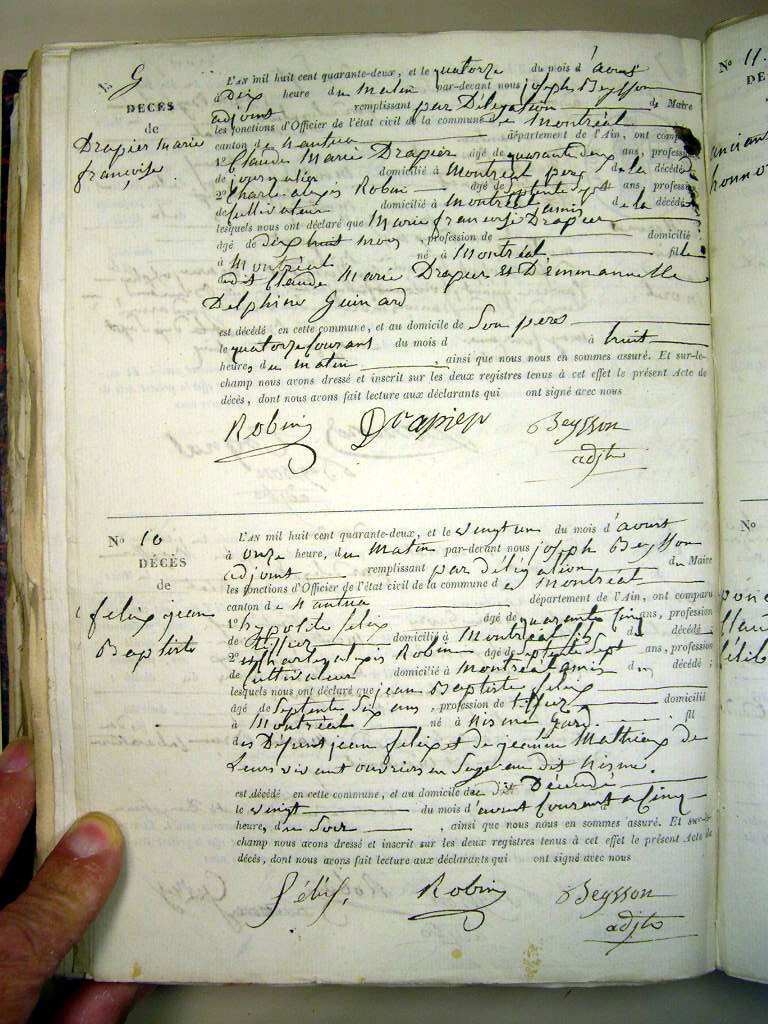 N° 9
DÉCÈS
de
Drapier Marie
françoise
L'AN mil huit cent quarante-deux, et le quatorze du mois d'aoust
à Dix heure du Matin par-devant nous joseph Beysson
adjoint remplissant par Délégation de Maire
les fonctions d'Officier de l'état civil de la commune de Montréal
canton de Nantua département de l'Ain, ont comparu
1° Claude Marie Drapier âgé de quarante deux ans, profession
de journalier domicilié à Montréal pere de la décédée
2° Charle alexis Robin âgé de septente sept ans, profession
de Cultivateur domicilié à Montréal amis de la décédée
lesquels nous ont déclaré que Marie françoise Drapier
âgé de dix huit mois, profession de domicilié
à Montréal né à Montréal, fille
de Claude Marie Drapier et D'emmannuelle
Delphine Guinard
est décédé en cette commune, et au domicile de Son pere
le quatorze Courant du mois d à huit
heure, du matin, ainsi que nous nous en sommes assuré. Et sur-le-
champ nous avons dressé et inscrit sur les deux registres tenus à cet effet le présent Acte de
décès, dont nous avons fait lecture aux déclarants qui ont signé avec nous
Robin Drapier Beysson
adjt
N° 10
DÉCÈS
de
felix jean
Baptiste
L'AN mil huit cent quarante-deux, et le vingt un du mois d'aoust
à onze heure, du Matin par-devant nous joseph Beysson
adjoint remplissant par délégation du Maire
les fonctions d'Officier de l'état civil de la commune de Montréal
canton de Nantua département de l'Ain, ont comparu
1° hypolite felix âgé de quarante cinq ans, profession
de tissier domicilié à Montréal fils du décédé
2° Charle alexis Robin âgé de septente sept ans, profession
de Cultivateur domicilié à Montréal amis du décédé;
lesquels nous ont déclaré que jean Baptiste felix
âgé de septente six ans, profession de tissier domicilié
à Montréal né à Nisme Gard. fil
des Défunt jean felix et de jeanne Mathieux de
Leurs vivant ouvriers en Soye au dit Nisme.
est décédé en cette commune, et au domicile du dit Décédé
le vingt du mois d'aoust Courant à Cinq
heure, du Soir, ainsi que nous nous en sommes assuré. Et sur-le
champ nous avons dressé et inscrit sur les deux registres tenus à cet effet le présent Acte de
décès, dont nous avons fait lecture aux déclarants qui ont signé avec nous
félix, Robin Beysson
adjt
N° 11.
DÉ
ancian
honno
N°